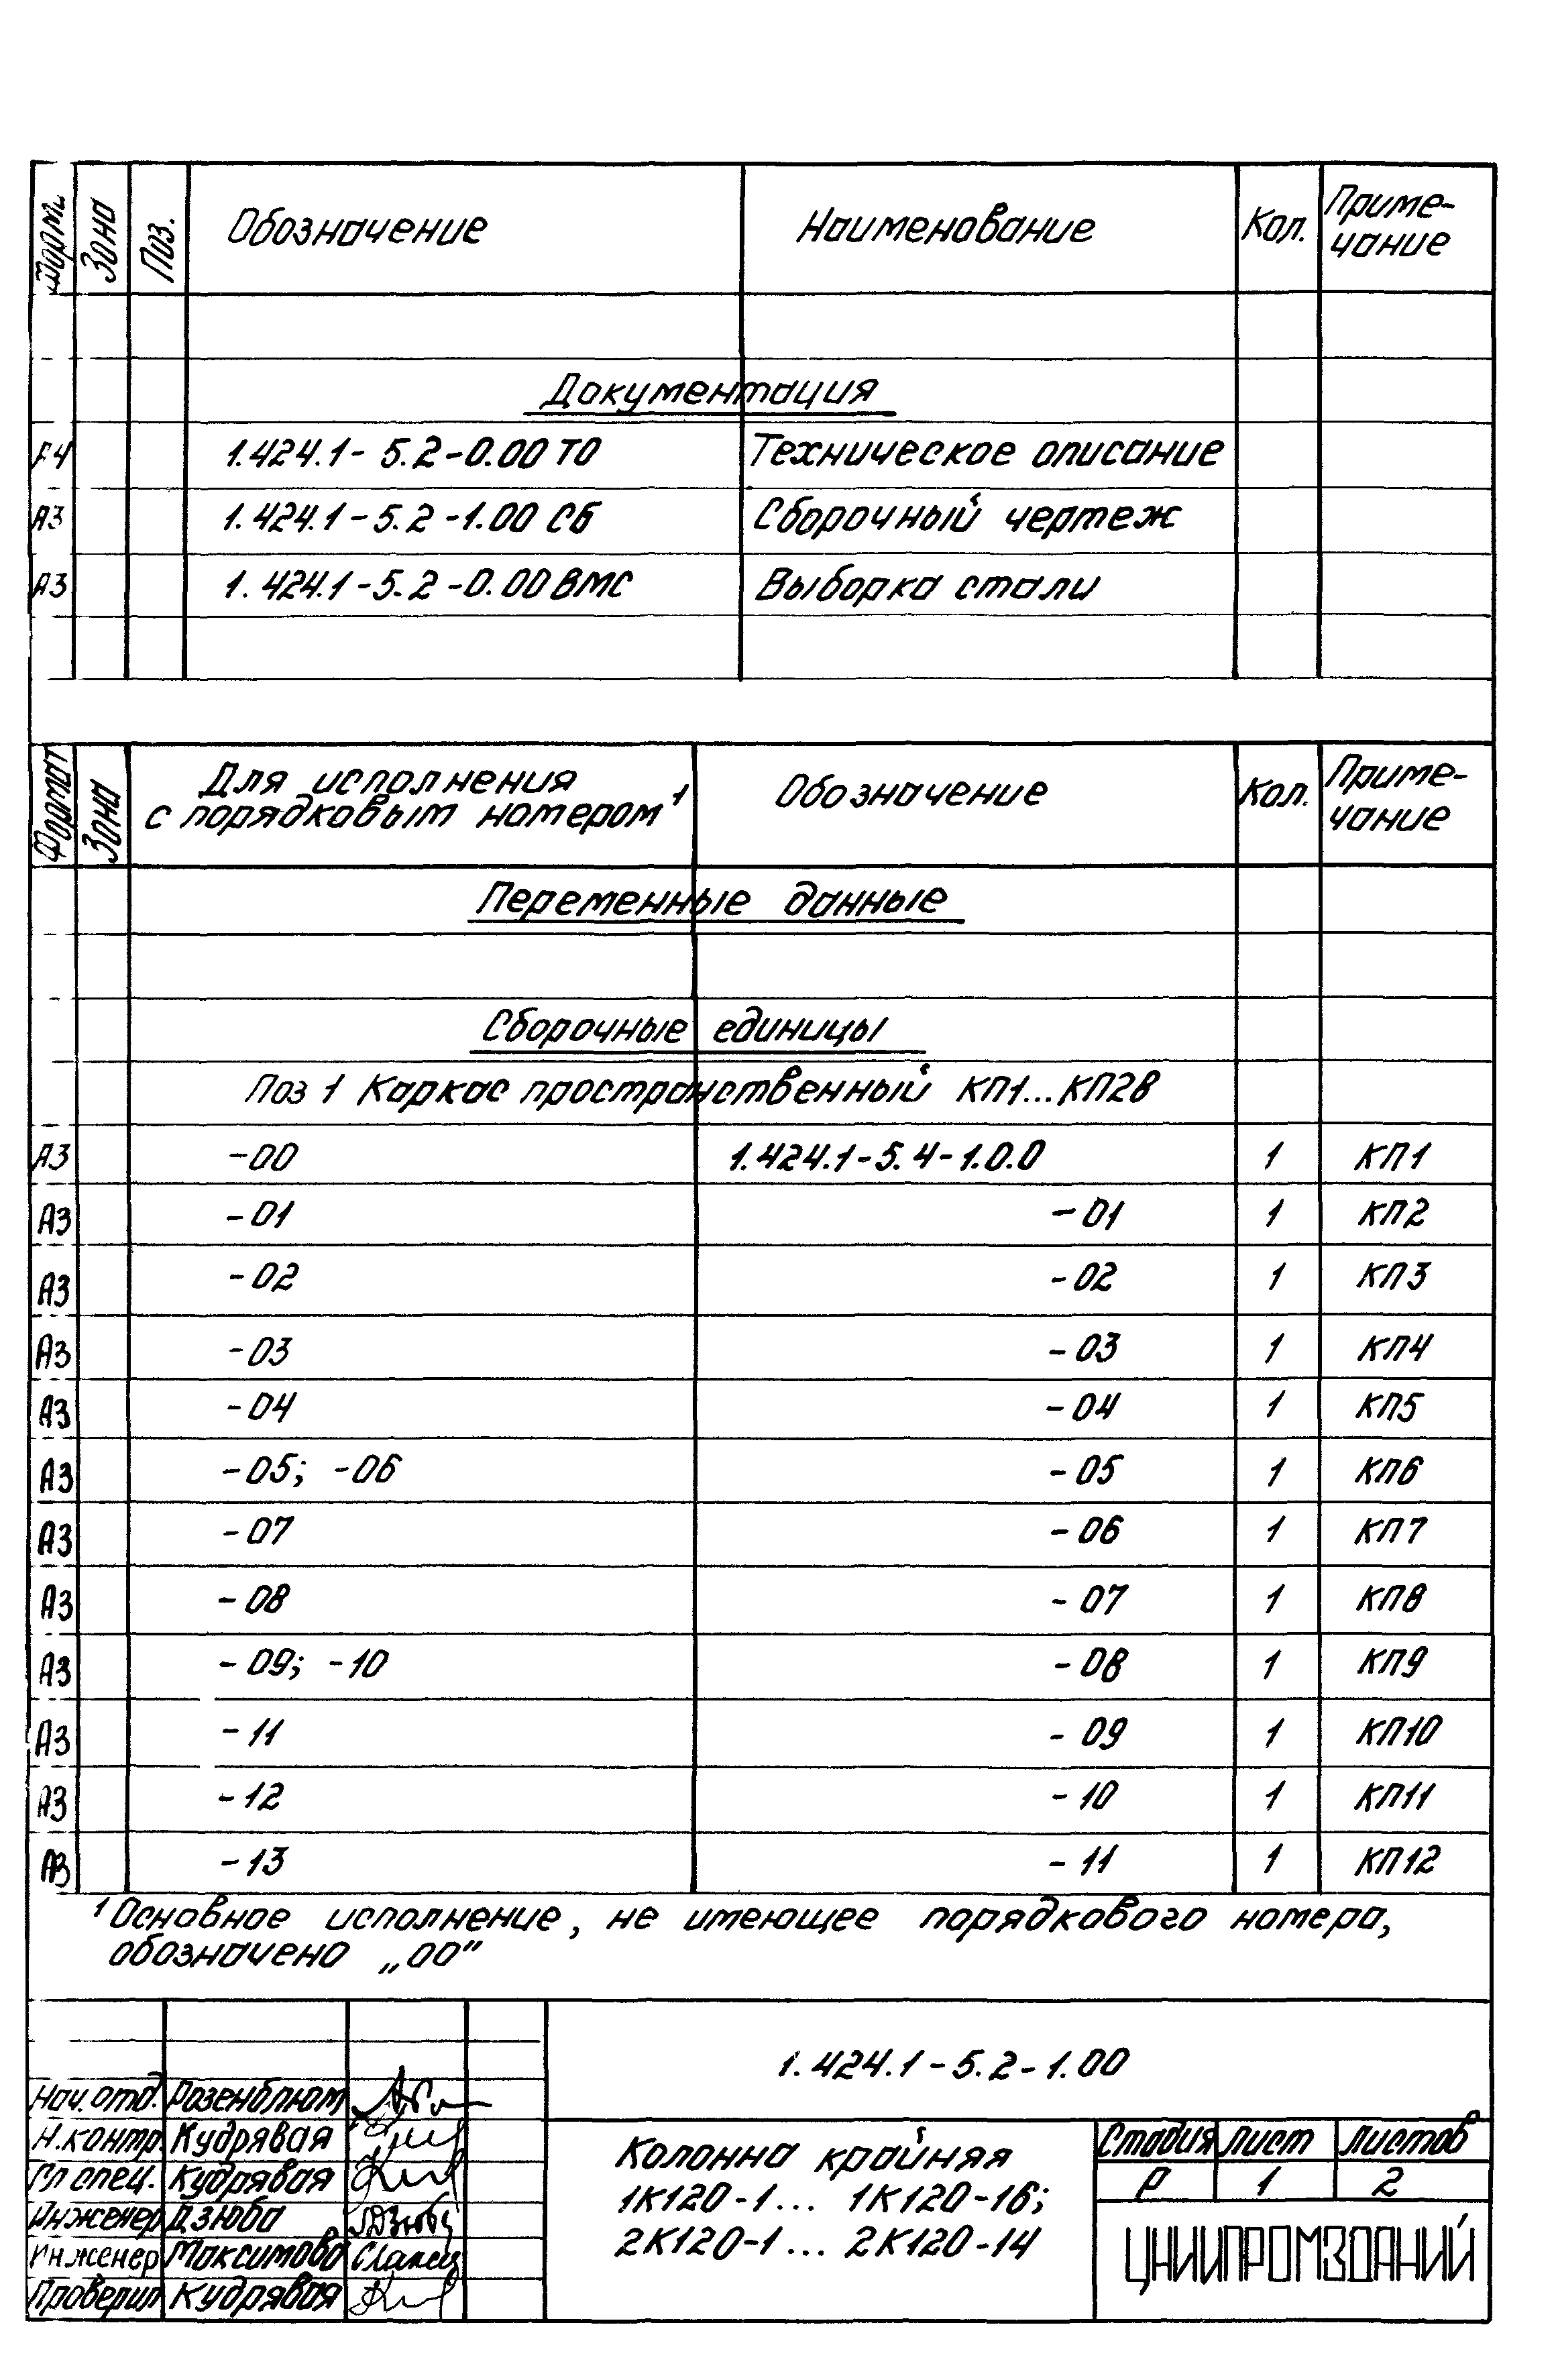 Форм. Зона Поз. Обозначение Наименование Кол. Приме-
чание
Документация
1.424.1-5.2-0.00 ТО Техническое описание
А3 1.424.1-5.2-1.00 СБ Сборочный чертеж
А3 1.424.1-5.2-0.00 ВМС Выборка стали
Формат Зона Для исполнения
с порядковым номером¹ Обозначение Кол. Приме-
чание
Переменные данные
Сборочные единицы
Поз 1 Каркас пространственный КП1...КП28
А3 -00 1.424.1-5.4-1.0.0 1 КП1
А3 -01 -01 1 КП2
А3 -02 -02 1 КП3
А3 -03 -03 1 КП4
А3 -04 -04 1 КП5
А3 -05; -06 -05 1 КП6
А3 -07 -06 1 КП7
А3 -08 -07 1 КП8
А3 -09; -10 -08 1 КП9
А3 -11 -09 1 КП10
А3 -12 -10 1 КП11
А3 -13 -11 1 КП12
¹ Основное исполнение, не имеющее порядкового номера,
обозначено „00”
1.424.1-5.2-1.00
Нач. отд. Розенблюм
Н.контр. Кудрявая
Гл спец. Кудрявая
Инженер Дзюба
Инженер Максимова
Проверил Кудрявая
Колонна крайняя
1К120-1... 1К120-16;
2К120-1... 2К120-14
Стадия Лист Листов
Р 1 2
ЦНИИПРОМЗДАНИЙ